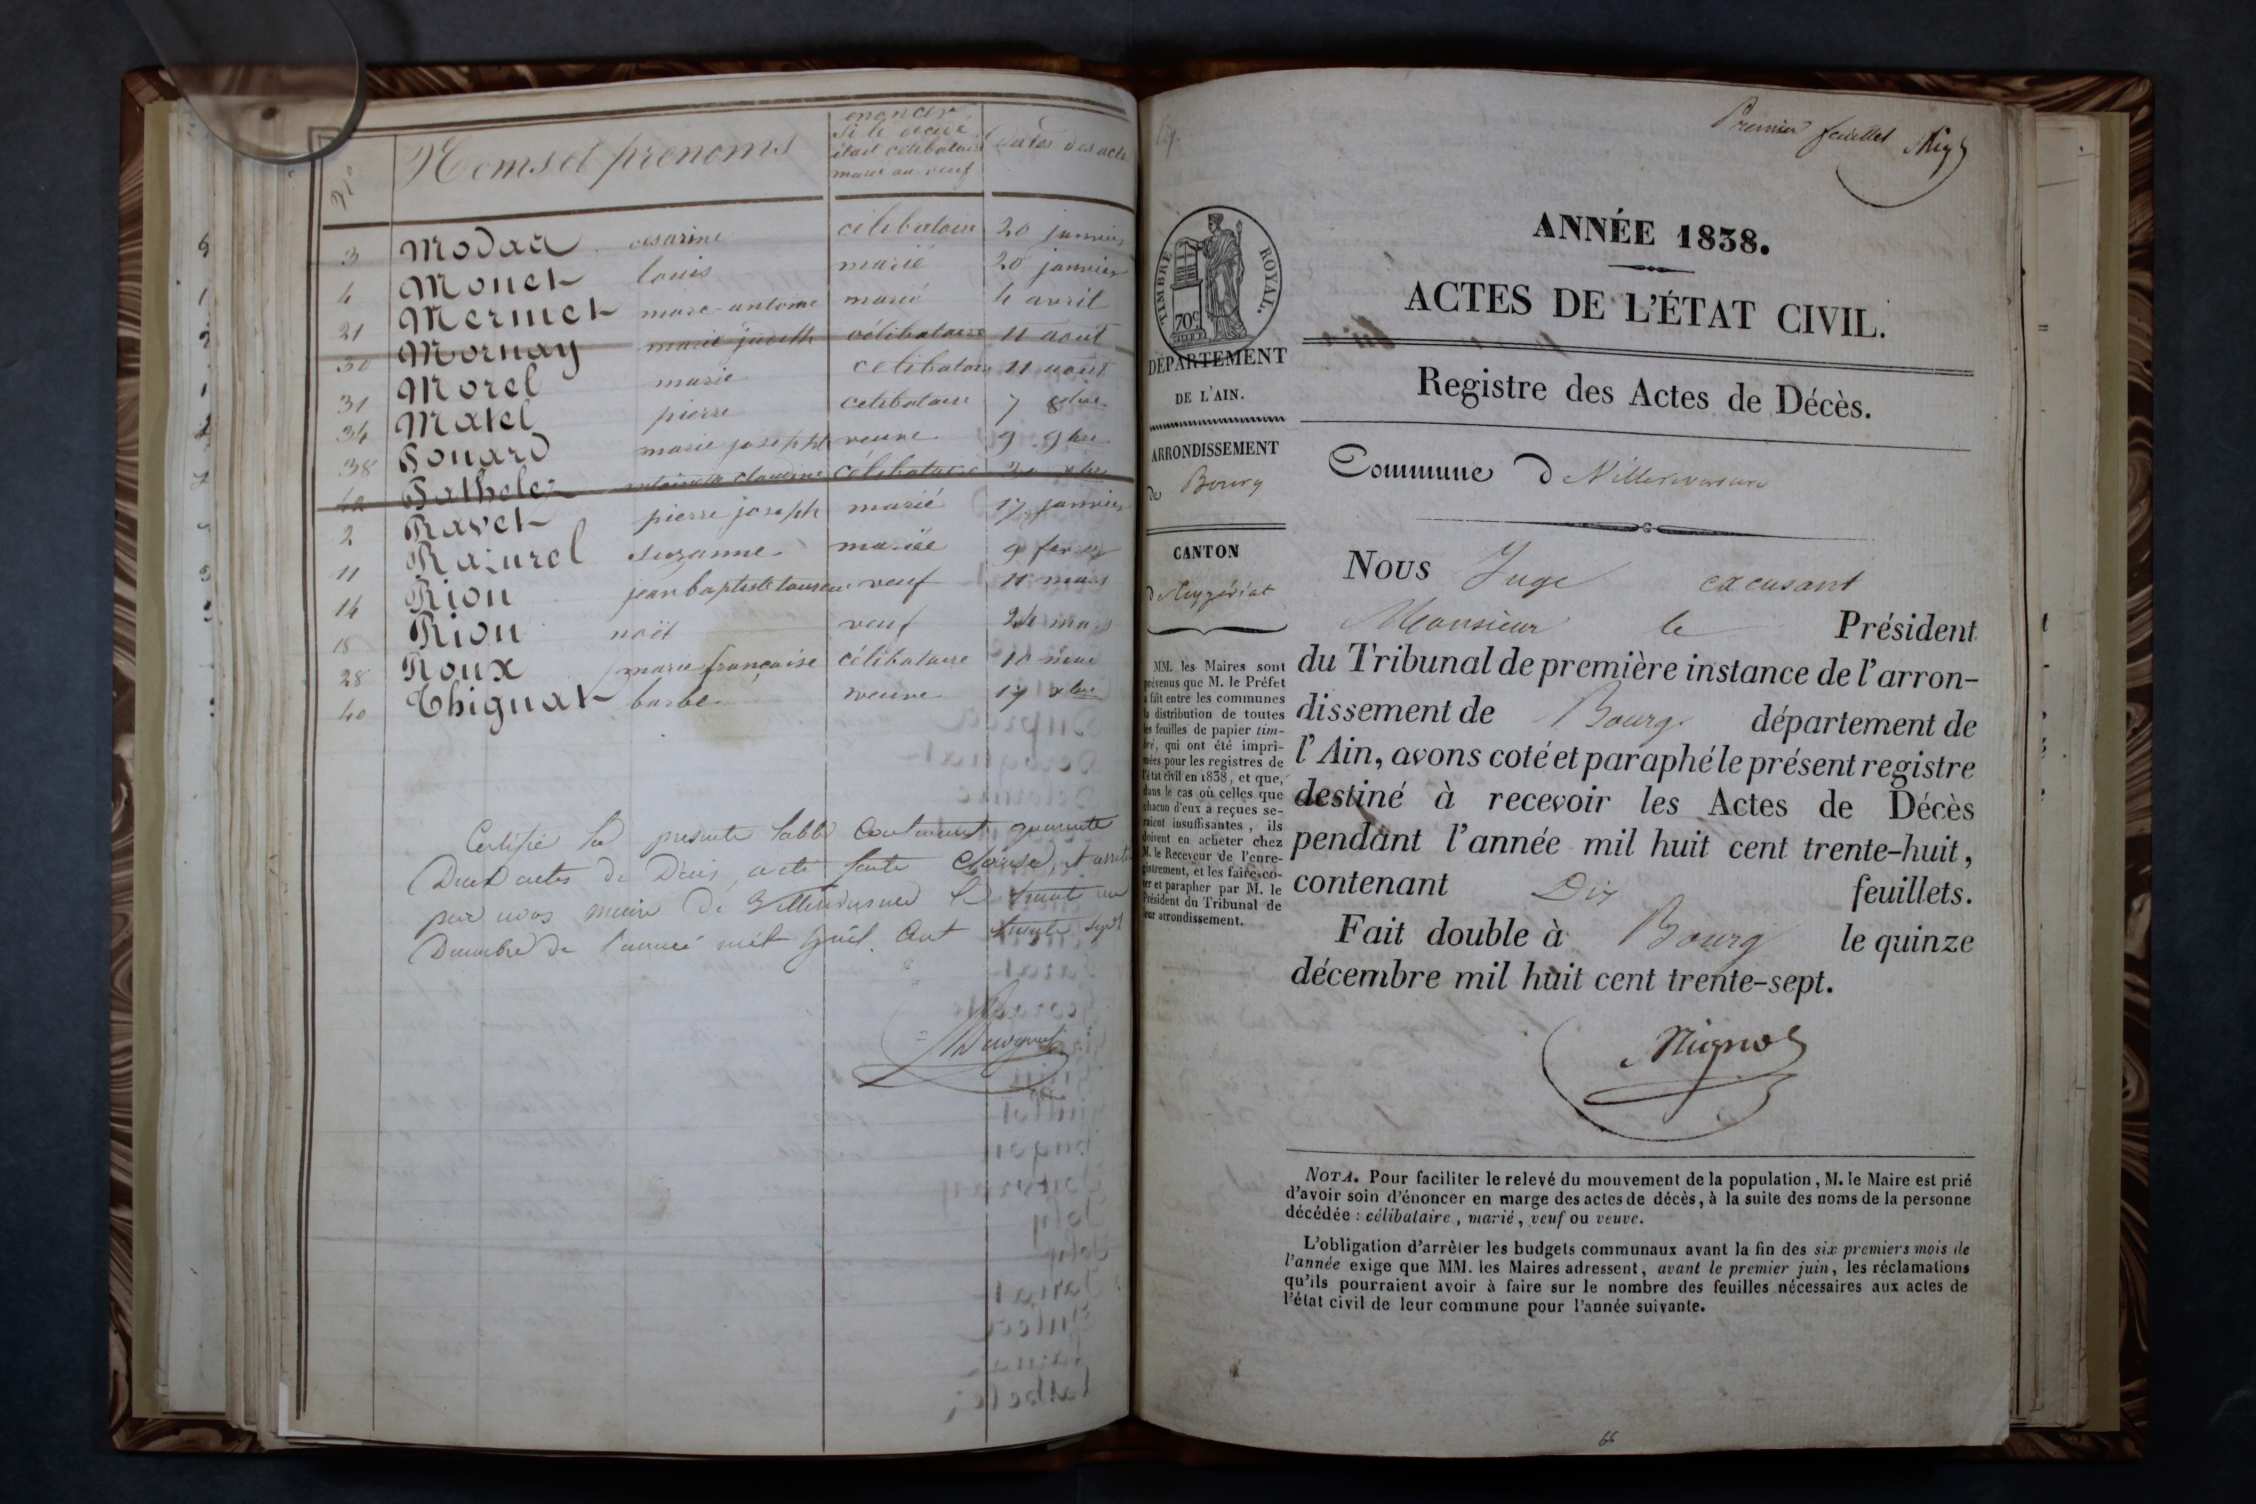 Nº
Noms et prenoms
enoncer
si le décédé
était célibataire
marié ou veuf
Dates des actes
3 Modax cesarine célibataire 20 janvier
4 Monet louis marié 20 janvier
21 Mermet marc-antoine marié 4 avril
30 Mornay marie judith célibataire 11 aout
31 Morel marie celibataire 11 aout
34 Matel pierre celibataire 7 8bre
38 Ponard marie josephte veuve 9 9bre
42 Pathelez antoinette claudine célibataire 31 xbre
2 Ravet pierre joseph marié 17 janvier
11 Razurel suzanne mariée 9 fevrier
14 Rion jean baptiste veuf 11 mars
18 Rion noël veuf 24 mars
28 Roux marie françoise célibataire 10
40 Thignat barbe veuve 17 xbre
Certifié la presente table Contenant quarante
Deux actes de Décès, acte faite Clause et arrêté
par nous maire de Villereversure le trente un
Decembre de l'année mil huit Cent trente Sept
Premier feuillet
TIMBRE ROYAL.
70c
ANNÉE 1838.
ACTES DE L'ÉTAT CIVIL.
DÉPARTEMENT
DE L'AIN.
ARRONDISSEMENT
de Bourg
CANTON
d Ceyzériat
MM. les Maires sont
prévenus que M. le Préfet
a fait entre les communes
la distribution de toutes
les feuilles de papier tim-
bré, qui ont été impri-
mées pour les registres de
l'état civil en 1838, et que,
dans le cas où celles que
chacun d'eux a reçues se-
raient insuffisantes, ils
doivent en acheter chez
M. le Receveur de l'enre-
gistrement, et les faire co-
ter et parapher par M. le
Président du Tribunal de
leur arrondissement.
Registre des Actes de Décès.
Commune d Villereversure
Nous Juge excusant
Monsieur le Président
du Tribunal de première instance de l'arron-
dissement de Bourg département de
l'Ain, avons coté et paraphé le présent registre
destiné à recevoir les Actes de Décès
pendant l'année mil huit cent trente-huit,
contenant Dix feuillets.
Fait double à Bourg le quinze
décembre mil huit cent trente-sept.
NOTA. Pour faciliter le relevé du mouvement de la population, M. le Maire est prié
d'avoir soin d'énoncer en marge des actes de décès, à la suite des noms de la personne
décédée : célibataire, marié, veuf ou veuve.
L'obligation d'arrêter les budgets communaux avant la fin des six premiers mois de
l'année exige que MM. les Maires adressent, avant le premier juin, les réclamations
qu'ils pourraient avoir à faire sur le nombre des feuilles nécessaires aux actes de
l'état civil de leur commune pour l'année suivante.
66